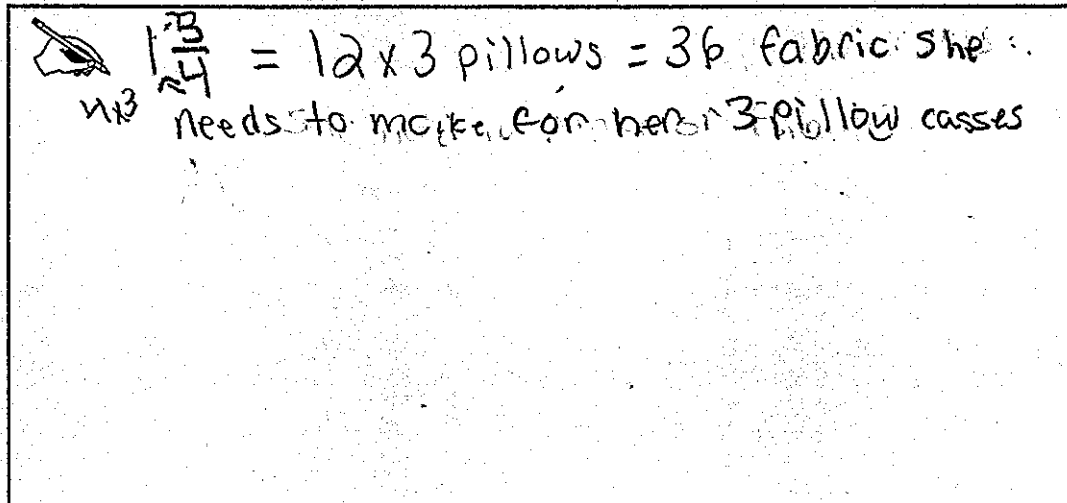 1 3/4 = 12 x 3 pillows = 36 fabric she
4x3 needs to make for her 3 pillow casses